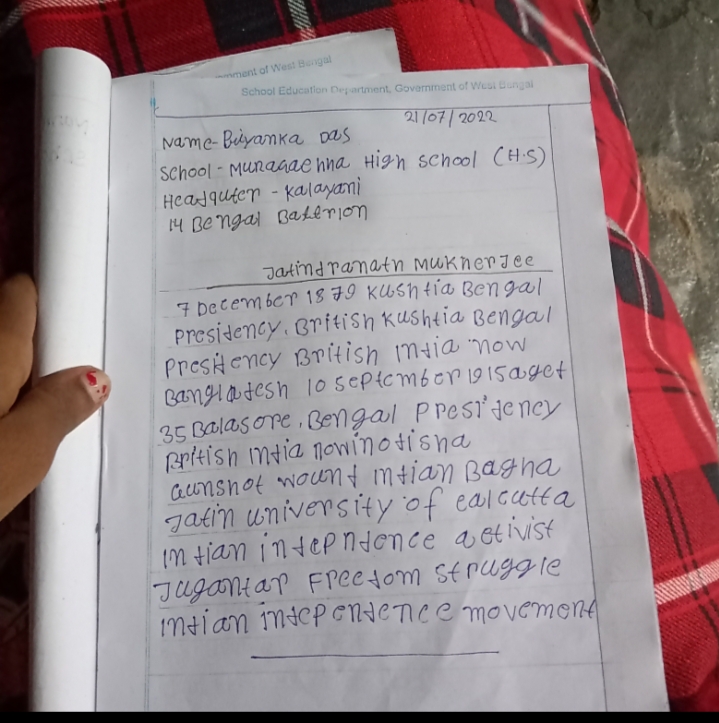 ment of West Bengal
School Education Department, Government of West Bengal
21/07/2022
Name- Biyanka Das
School - Muragaehha High School (H.S)
Headquter - Kalayani
14 Bengal Batterion
Jatindranath Mukherjee
7 December 1879 Kushtia Bengal
Presidency, British Kushtia Bengal
Presidency British India now
Bangladesh 10 September 1915 aged
35 Balasore, Bengal Presidency
British India nowinodisha
Gunshot wound indian Bagha
Jatin university of calcutta
indian indepndence activist
Jugantar Freedom struggle
indian independence movement